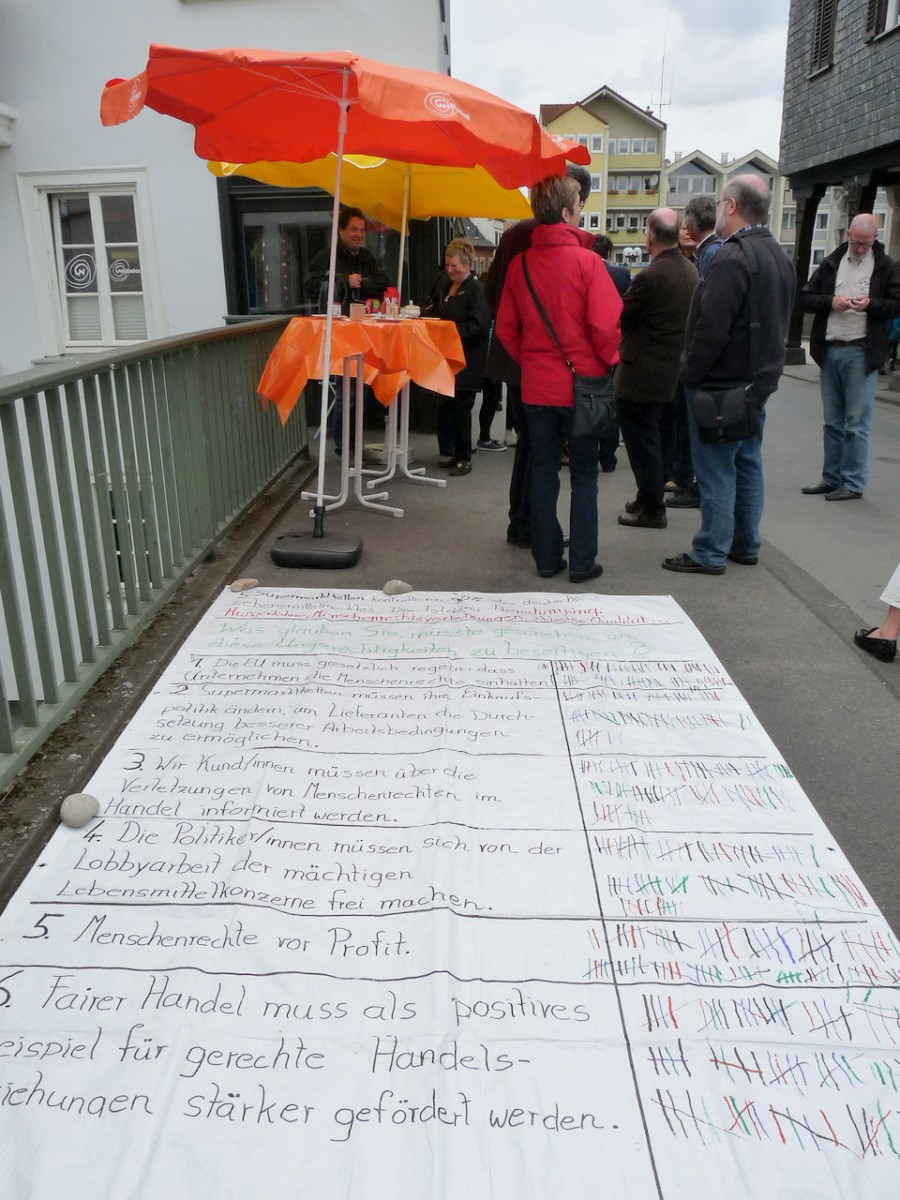 Weltladen
Weltladen
5 Supermarktketten kontrollieren 90% des deutschen
Lebensmittelmarktes. Die Folgen: Preisdumping,
Hungerlöhne, Menschenrechtsverletzungen, schlechte Qualität...
Was glauben Sie, müsste geschehen um
diese Ungerechtigkeiten zu beseitigen?
1. Die EU muss gesetzlich regeln, dass
Unternehmen die Menschenrechte einhalten!
2. Supermarktketten müssen ihre Einkaufs-
politik ändern, um Lieferanten die Durch-
setzung besserer Arbeitsbedingungen
zu ermöglichen.
3. Wir Kund/innen müssen über die
Verletzungen von Menschenrechten im
Handel informiert werden.
4. Die Politiker/innen müssen sich von der
Lobbyarbeit der mächtigen
Lebensmittelkonzerne frei machen.
5. Menschenrechte vor Profit.
6. Fairer Handel muss als positives
eispiel für gerechte Handels-
iehungen stärker gefördert werden.